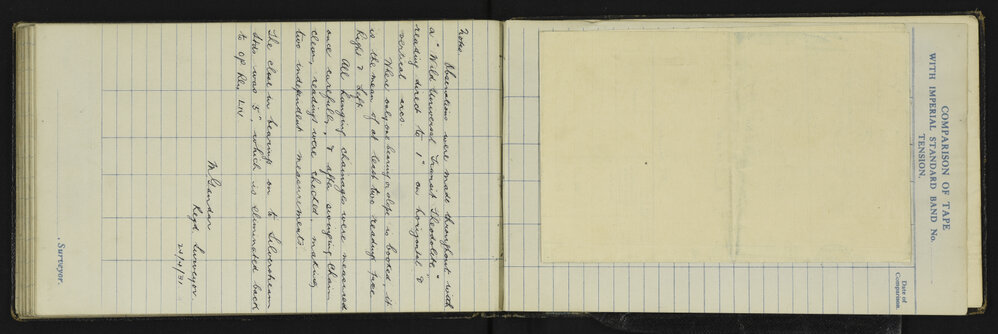 Notes. Observations were made throughout with
a "Wild Universal Transit Theodolite,"
reading direct to 1" on horizontal &
vertical arcs
Where only one bearing or slope is booked, it
is the mean of at least two reading face
Right & Left.
All hanging chainages were measured
once carefully, & after swinging chain
clear, readings were checked, making
two independent measurements.
The close in bearings on to Silverstream
was 5", which is eliminated back
to OP
Regd Surveyor
Surveyor.
COMPARISON OF TAPE
WITH IMPERIAL STANDARD BAND No.
TENSION.
Date of
Comparison.